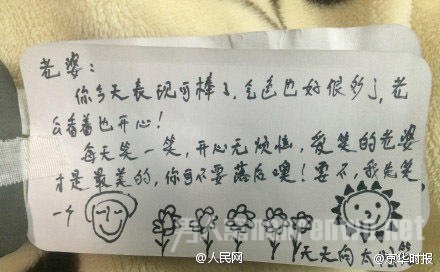 老婆：
你今天表现可棒了，气色也好很多了，老
公看着也开心！
每天笑一笑，开心无烦恼，爱笑的老婆
才是最美的，你可不要落后噢！要不，我先笑
一个
天天向太阳笑
@人民网
@京华时报